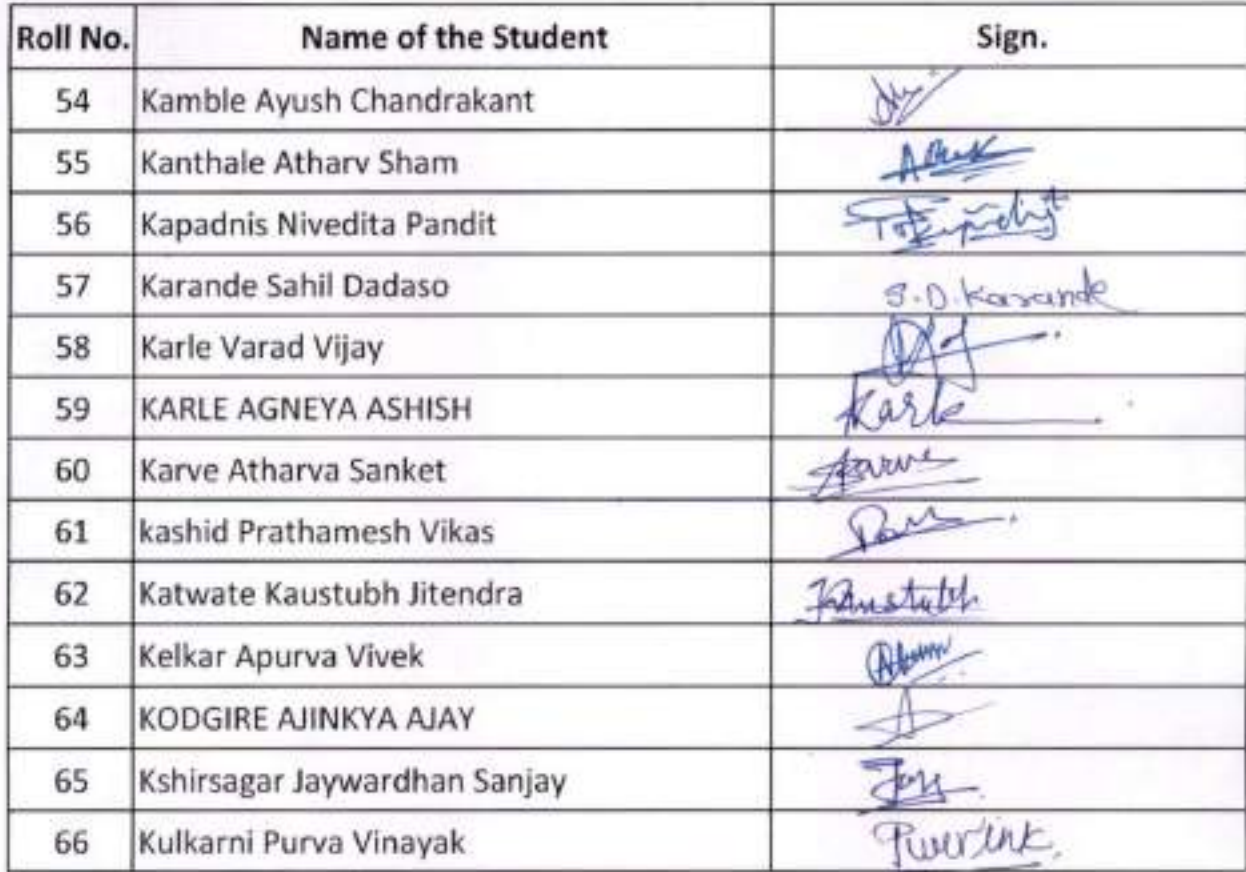 Roll No. Name of the Student Sign.
54 Kamble Ayush Chandrakant
55 Kanthale Atharv Sham
56 Kapadnis Nivedita Pandit
57 Karande Sahil Dadaso S.D.Karande
58 Karle Varad Vijay
59 KARLE AGNEYA ASHISH Karle
60 Karve Atharva Sanket Karve
61 kashid Prathamesh Vikas
62 Katwate Kaustubh Jitendra Kaustubh
63 Kelkar Apurva Vivek
64 KODGIRE AJINKYA AJAY
65 Kshirsagar Jaywardhan Sanjay
66 Kulkarni Purva Vinayak